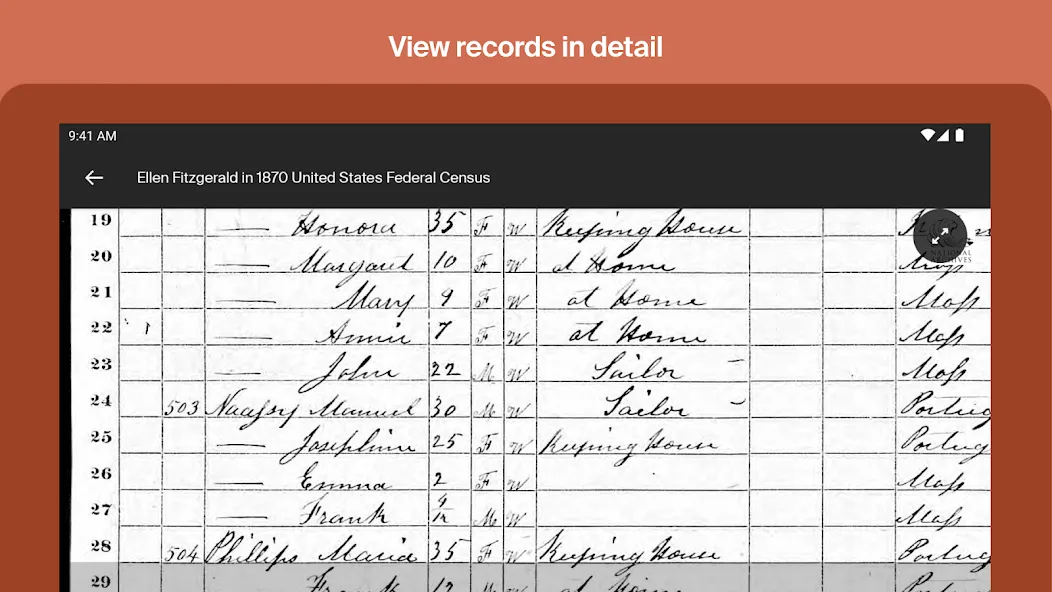 View records in detail
9:41 AM
Ellen Fitzgerald in 1870 United States Federal Census
19 — Honora 35 F W Keeping House
NATIONAL ARCHIVES
20 — Margaret 10 F W at Home Mass
21 — Mary 9 F W at Home Mass
22 1 — Annie 7 F W at Home Mass
23 — John 22 M W Sailor — Mass
24 503 Manuel 30 M W Sailor — Portug
25 — Josephine 25 F W Keeping House Portug
26 — Emma 2 F W Mass
27 — Frank 4/12 M W Mass
28 504 Phillips Maria 35 F W Keeping House Portug
29 Frank 12 M W at Home